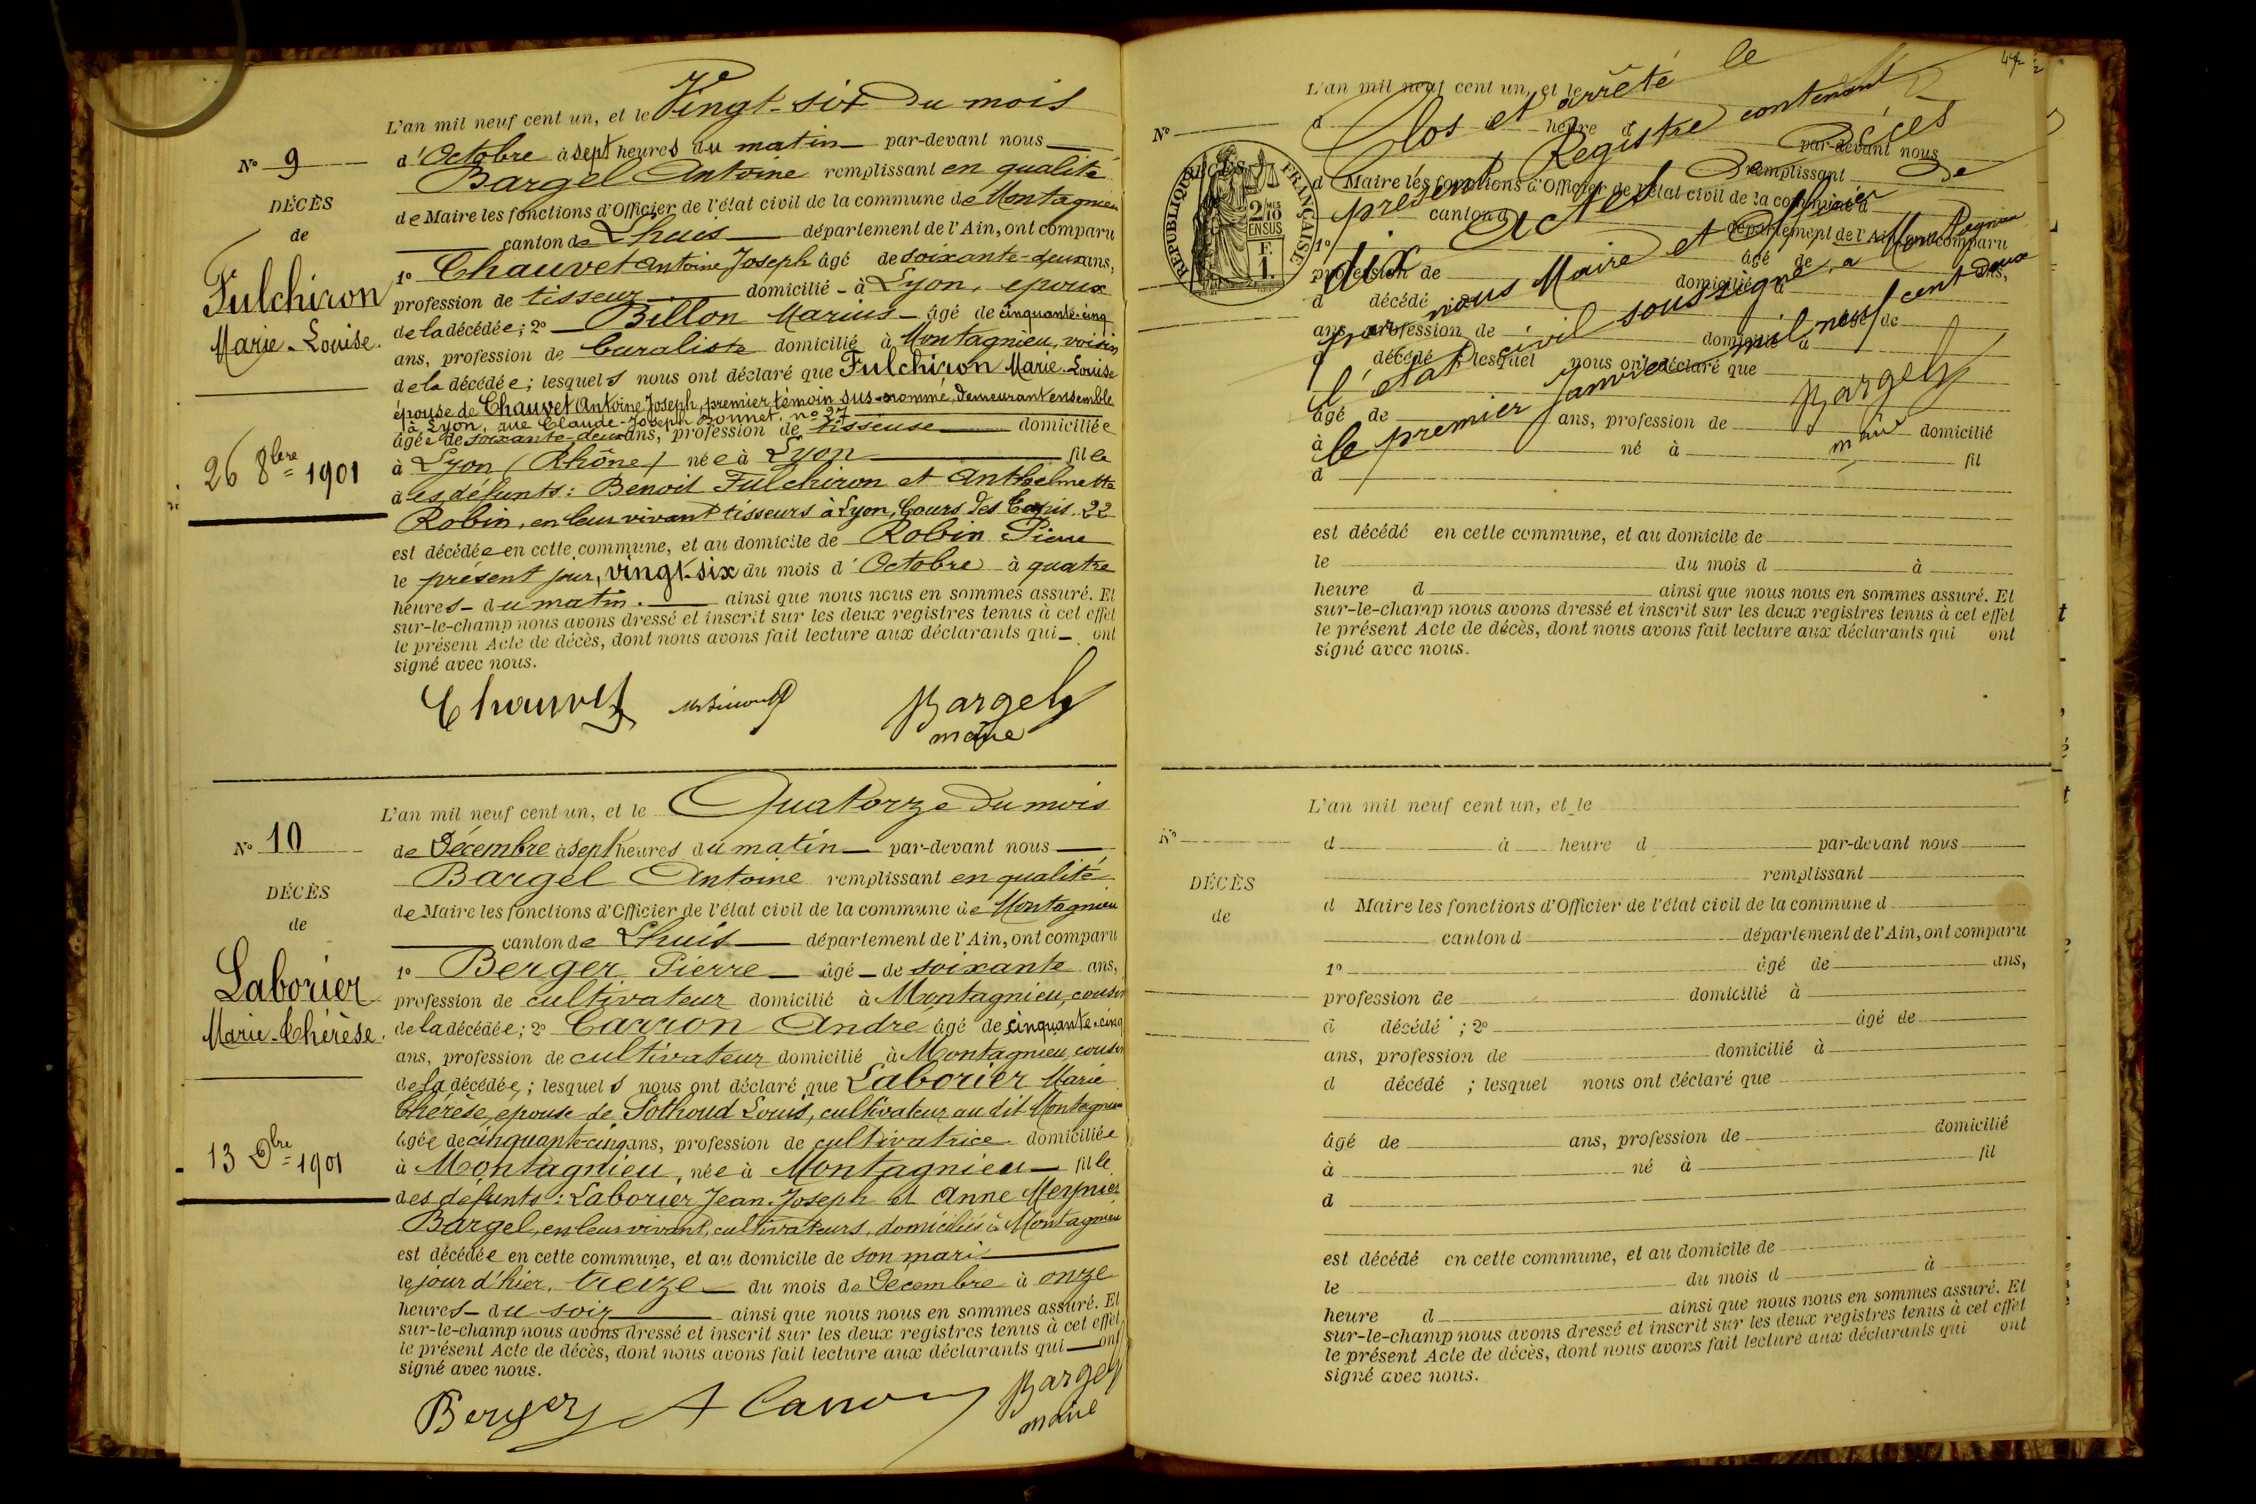 L'an mil neuf cent un, et le Vingt-six du mois
d'Octobre à sept heures du matin par-devant nous
Bargel Antoine remplissant en qualité
de Maire les fonctions d'Officier de l'état civil de la commune de Montagnieu
canton de Lhuis département de l'Ain, ont comparu
1º Chauvet Antoine Joseph âgé de soixante-deux ans,
profession de tisseur domicilié à Lyon, époux
de la décédée; 2º Billon Marius âgé de cinquante-cinq
ans, profession de buraliste domicilié à Montagnieu, voisin
de la décédée; lesquels nous ont déclaré que Fulchiron Marie-Louise
épouse de Chauvet Antoine Joseph, premier témoin sus-nommé, demeurant ensemble
à Lyon, rue Claude-Joseph Bonnet, nº 27
âgée de soixante-deux ans, profession de tisseuse domiciliée
à Lyon (Rhône) née à Lyon fille
des défunts: Benoit Fulchiron et Anthelmette
Robin, en leur vivant tisseurs à Lyon, Cours des Tapis 22
est décédée en cette commune, et au domicile de Robin Pierre
le présent jour, vingt-six du mois d'Octobre à quatre
heures du matin. ainsi que nous nous en sommes assuré. Et
sur-le-champ nous avons dressé et inscrit sur les deux registres tenus à cet effet
le présent Acte de décès, dont nous avons fait lecture aux déclarants qui ont
signé avec nous.
Nº 9
DÉCÈS
de
Fulchiron
Marie-Louise.
26 8bre 1901
Chauvet
Bargel
maire
L'an mil neuf cent un, et le Quatorze du mois
de Décembre à sept heures du matin par-devant nous
Bargel Antoine remplissant en qualité
de Maire les fonctions d'Officier de l'état civil de la commune de Montagnieu
canton de Lhuis département de l'Ain, ont comparu
1º Berger Pierre âgé de soixante ans,
profession de cultivateur domicilié à Montagnieu, cousin
de la décédée; 2º Carron André âgé de cinquante-cinq
ans, profession de cultivateur domicilié à Montagnieu, cousin
de la décédée; lesquels nous ont déclaré que Laborier Marie
Thérèse, épouse de Pothoud Louis, cultivateur au dit Montagnieu
âgée de cinquante-cinq ans, profession de cultivatrice domiciliée
à Montagnieu, née à Montagnieu fille
des défunts: Laborier Jean-Joseph et Anne Meynier
Bargel, en leur vivant, cultivateurs, domiciliés à Montagnieu
est décédée en cette commune, et au domicile de son mari
le jour d'hier, treize du mois de Décembre à onze
heures du soir ainsi que nous nous en sommes assuré. Et
sur-le-champ nous avons dressé et inscrit sur les deux registres tenus à cet effet
le présent Acte de décès, dont nous avons fait lecture aux déclarants qui ont
signé avec nous.
Nº 10
DÉCÈS
de
Laborier
Marie-Thérèse.
13 Dbre 1901
Berger A Carron Bargel
maire
L'an mil neuf cent un, et le
d heure d par-devant nous
remplissant
d Maire les fonctions d'Officier de l'état civil de la commune d
canton d département de l'Ain, ont comparu
1º âgé de ans,
profession de domicilié à
d décédé âgé de
ans, profession de domicilié à
d décédé lesquel nous ont déclaré que
âgé de ans, profession de domicilié
à né à fil
d
est décédé en cette commune, et au domicile de
le du mois d à
heure d ainsi que nous nous en sommes assuré. Et
sur-le-champ nous avons dressé et inscrit sur les deux registres tenus à cet effet
le présent Acte de décès, dont nous avons fait lecture aux déclarants qui ont
signé avec nous.
Nº
RÉPUBLIQUE FRANÇAISE
2/10 EN SUS
F.
1.
Clos et arrêté le
présent Registre contenant
dix Actes de Décès
par nous Maire et Officier de
l'état civil soussigné, à Montagnieu
le premier Janvier mil neuf cent deux
Bargel
maire
L'an mil neuf cent un, et le
d à heure d par-devant nous
remplissant
d Maire les fonctions d'Officier de l'état civil de la commune d
canton d département de l'Ain, ont comparu
1º âgé de ans,
profession de domicilié à
d décédé ; 2º âgé de
ans, profession de domicilié à
d décédé ; lesquel nous ont déclaré que
âgé de ans, profession de domicilié
à né à fil
d
est décédé en cette commune, et au domicile de
le du mois d à
heure d ainsi que nous nous en sommes assuré. Et
sur-le-champ nous avons dressé et inscrit sur les deux registres tenus à cet effet
le présent Acte de décès, dont nous avons fait lecture aux déclarants qui ont
signé avec nous.
Nº
DÉCÈS
de